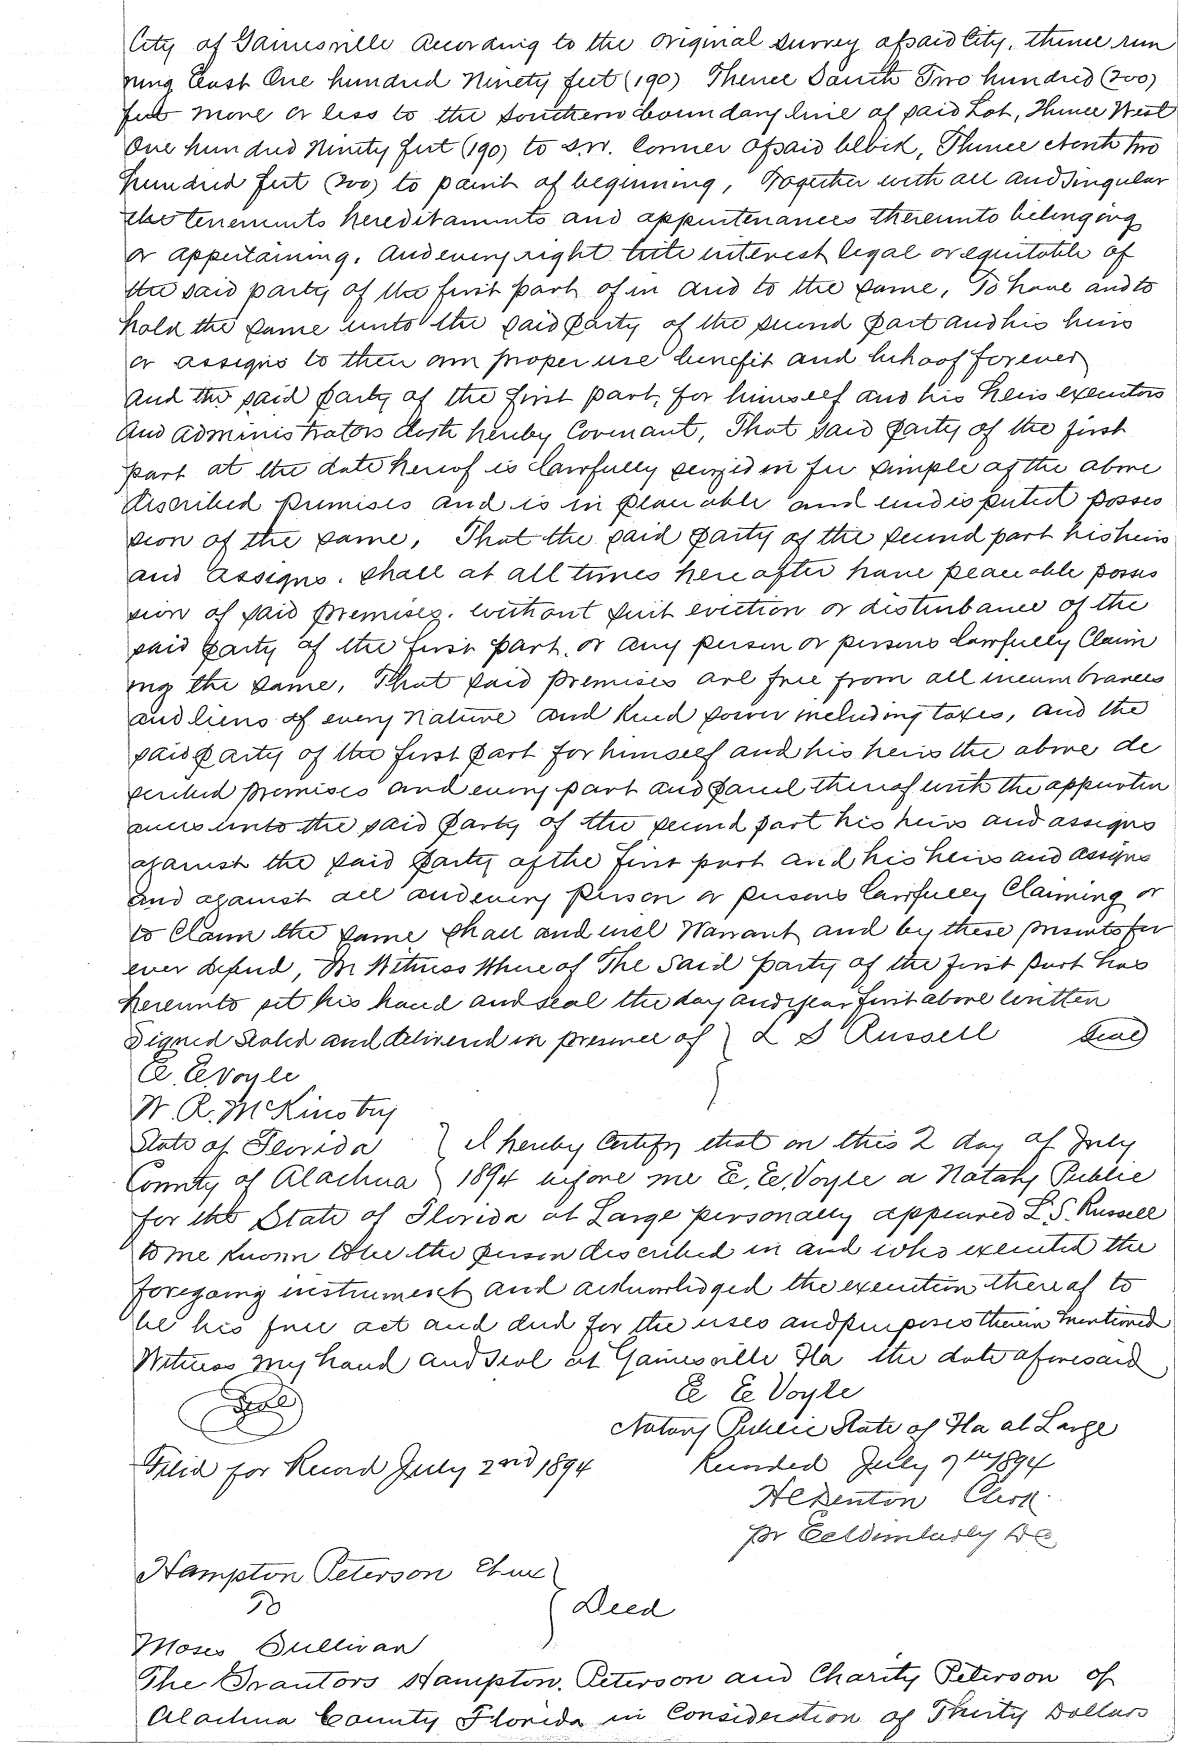 City of Gainesville according to the original survey of said City, thence run
ning East One hundred Ninety feet (190) Thence South Two hundred (200)
feet more or less to the Southern boundary line of said Lot, Thence West
One hundred Ninety feet (190) to S.W. Corner of said block, Thence North two
hundred feet (200) to point of beginning, Together with all and Singular
the tenements hereditaments and appurtenances thereunto belonging
or appertaining. And every right title interest legal or equitable of
the said party of the first part of in and to the same, To have and to
hold the same unto the said party of the second part and his heirs
or assigns to their own proper use benefit and behoof forever
And the said party of the first part, for himself and his heirs executors
And administrators doth hereby Covenant, That said party of the first
part at the date hereof is lawfully seized in fee simple of the above
discribed premises and is in peaceable and undisputed posses
sion of the same, That the said party of the second part his heirs
and assigns. shall at all times hereafter have peaceable posses
sion of said premises. without suit eviction or disturbance of the
said party of the first part, or any person or persons lawfully Claim
ing the same, That said premises are free from all incumbrances
and liens of every nature and kind soever including taxes, and the
said party of the first part for himself and his heirs the above de
scribed premises and every part and parcel thereof with the appurten
ances unto the said party of the second part his heirs and assigns
against the said party of the first part and his heirs and assigns
and against all and every person or persons lawfully Claiming or
to Claim the same shall and will Warrant and by these presents for
ever defend, In Witness Whereof The Said party of the first part has
hereunto set his hand and seal the day and year first above written
Signed Sealed and delivered in presence of } L S Russell Seal
E. E. Voyle
W. R. McKinstry
State of Florida } I hereby Certify that on this 2 day of July
County of Alachua } 1894 before me E. E. Voyle a Notary Public
for the State of Florida at Large personally appeared L. S. Russell
to me known to be the person discribed in and who executed the
foregoing instrument and acknowledged the execution thereof to
be his free act and deed for the uses and purposes therein mentioned
Witness my hand and seal at Gainesville Fla the date aforesaid
Seal E E Voyle
Notary Public State of Fla at Large
Filed for Record July 2nd 1894 Recorded July 7th 1894
H C Denton Clerk.
pr DC
Hampton Peterson }
To } Deed
Moses Sullivan
The Grantors Hampton. Peterson and Charity Peterson of
Alachua County Florida in Consideration of Thirty Dollars